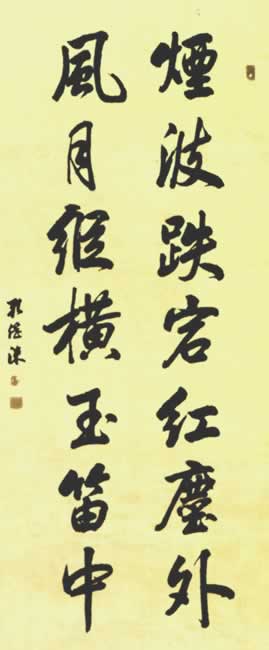 煙波跌宕紅塵外
風月縱橫玉笛中